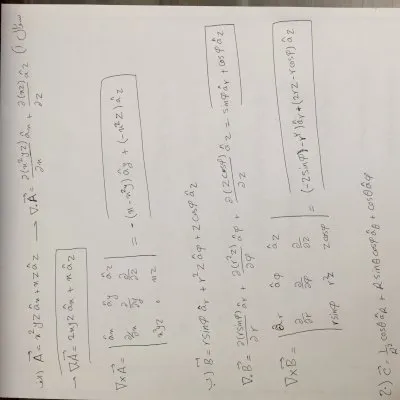 سوال 1)
الف) A⃗ = x²yz âx + xz âz → ∇.A⃗ = ∂(x²yz)/∂x âx + ∂(xz)/∂z âz
→ ∇A⃗ = 2xyz âx + x âz
∇×A⃗ = | âx ây âz ; ∂/∂x ∂/∂y ∂/∂z ; x²yz 0 xz | = -(x-x²y) ây + (-x²z) âz
ب) B⃗ = r sinφ âr + r²z âφ + z cosφ âz
∇.B⃗ = ∂(r sinφ)/∂r âr + ∂(r²z)/∂φ âφ + ∂(z cosφ)/∂z âz = sinφ âr + cosφ âz
∇×B⃗ = | âr âφ âz ; ∂/∂r ∂/∂φ ∂/∂z ; r sinφ r²z z cosφ | = (-z sinφ - r²) âr + (2rz - r cosφ) âz
ج) C⃗ = 1/R² cosθ âR + R sinθ cosφ âθ + cosθ âφ